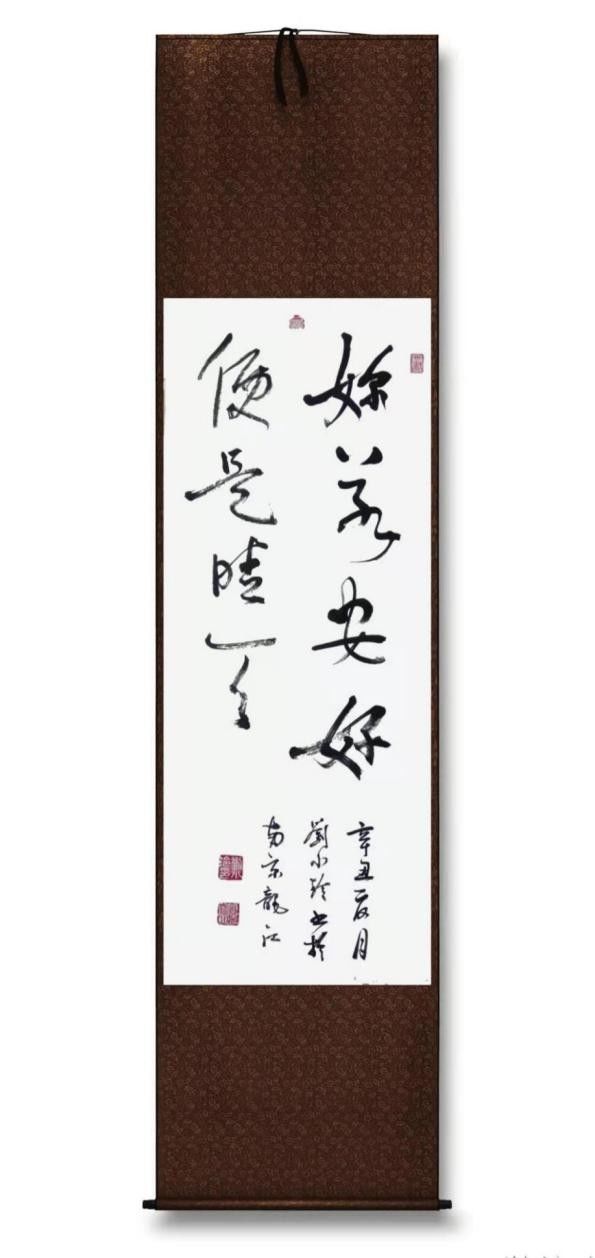 妳若安好
便是晴天
辛丑夏月
劉小玲書於
南京龍江